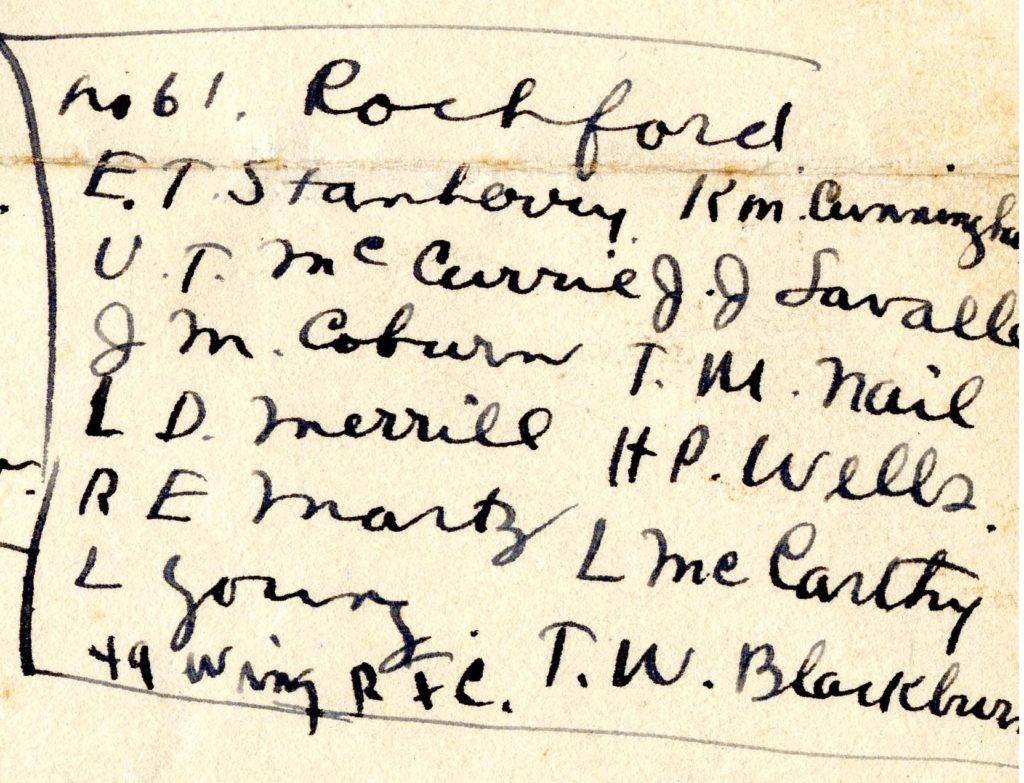 no 61. Rochford
E. T. Stanberry. K m. Cunningha
U. T. McCurrie J. J Lavalle
J M. Coburn T. M. Nail
L D. Merrill H P. Wells.
R E Martz L McCarthy
L Young. T. W. Blackburn
49 Wing R F C.